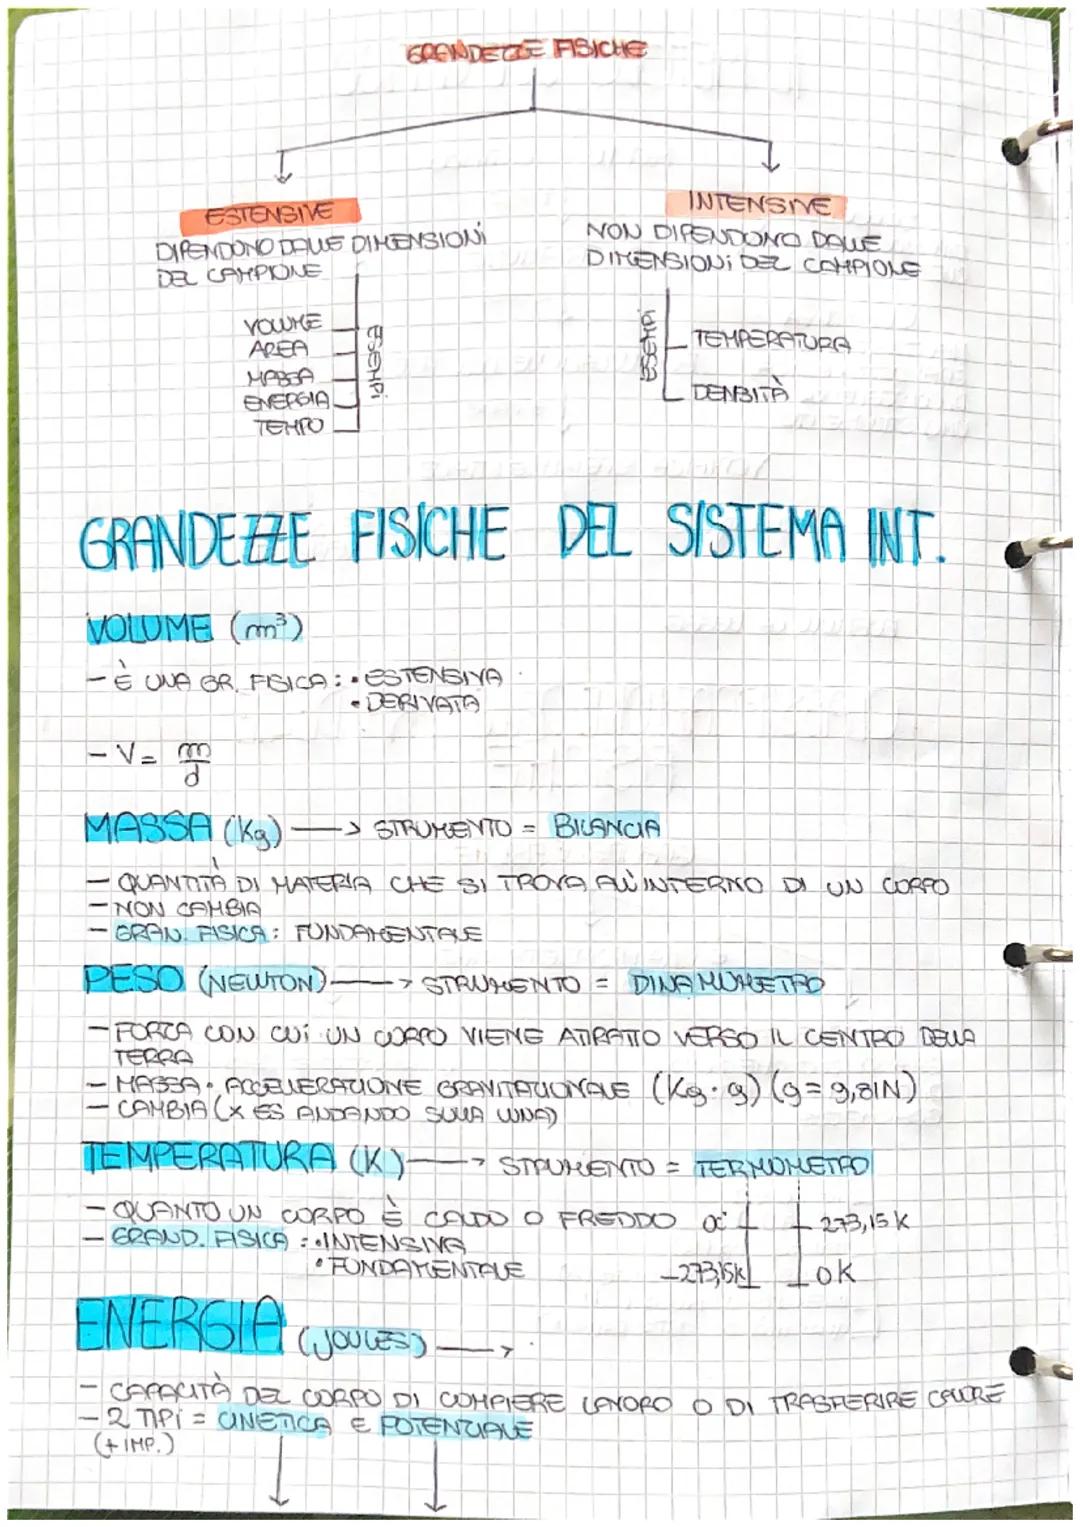 GRANDEZZE FISICHE
ESTENSIVE
DIPENDONO DALLE DIMENSIONI
DEL CAMPIONE
VOLUME
AREA
MASSA
ENERGIA
TEMPO
ESEMPI
INTENSIVE
NON DIPENDONO DALLE
DIMENSIONI DEL CAMPIONE
ESEMPI
TEMPERATURA
DENSITÀ
GRANDEZZE FISICHE DEL SISTEMA INT.
VOLUME (m³)
- È UNA GR. FISICA: • ESTENSIVA
• DERIVATA
- V = m/d
MASSA (Kg) → STRUMENTO = BILANCIA
- QUANTITÀ DI MATERIA CHE SI TROVA ALL'INTERNO DI UN CORPO
- NON CAMBIA
- GRAN. FISICA: FUNDAMENTALE
PESO (NEWTON) → STRUMENTO = DINAMOMETRO
- FORZA CON CUI UN CORPO VIENE ATTRATTO VERSO IL CENTRO DELLA
TERRA
- MASSA • ACCELERAZIONE GRAVITAZIONALE (Kg • g) (g = 9,81N)
- CAMBIA (X ES ANDANDO SULLA LUNA)
TEMPERATURA (K) → STRUMENTO = TERMOMETRO
- QUANTO UN CORPO È CALDO O FREDDO 0C° 273,15 K
- GRAND. FISICA: • INTENSIVA
• FUNDAMENTALE -273,15K 0K
ENERGIA (JOULES) →
- CAPACITÀ DEL CORPO DI COMPIERE LAVORO O DI TRASFERIRE CALORE
- 2 TIPI = CINETICA E POTENZIALE
(+ IMP.)